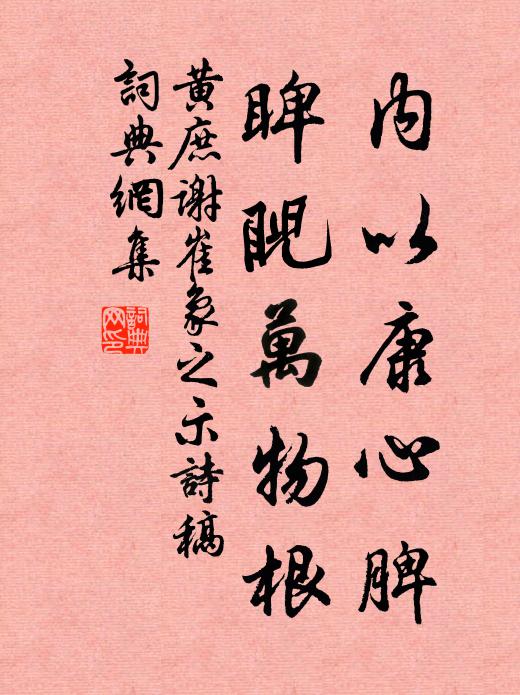 內以康心脾
睥睨萬物根
黃庶謝崔象之示詩稿
詞典網集
詞典
网印